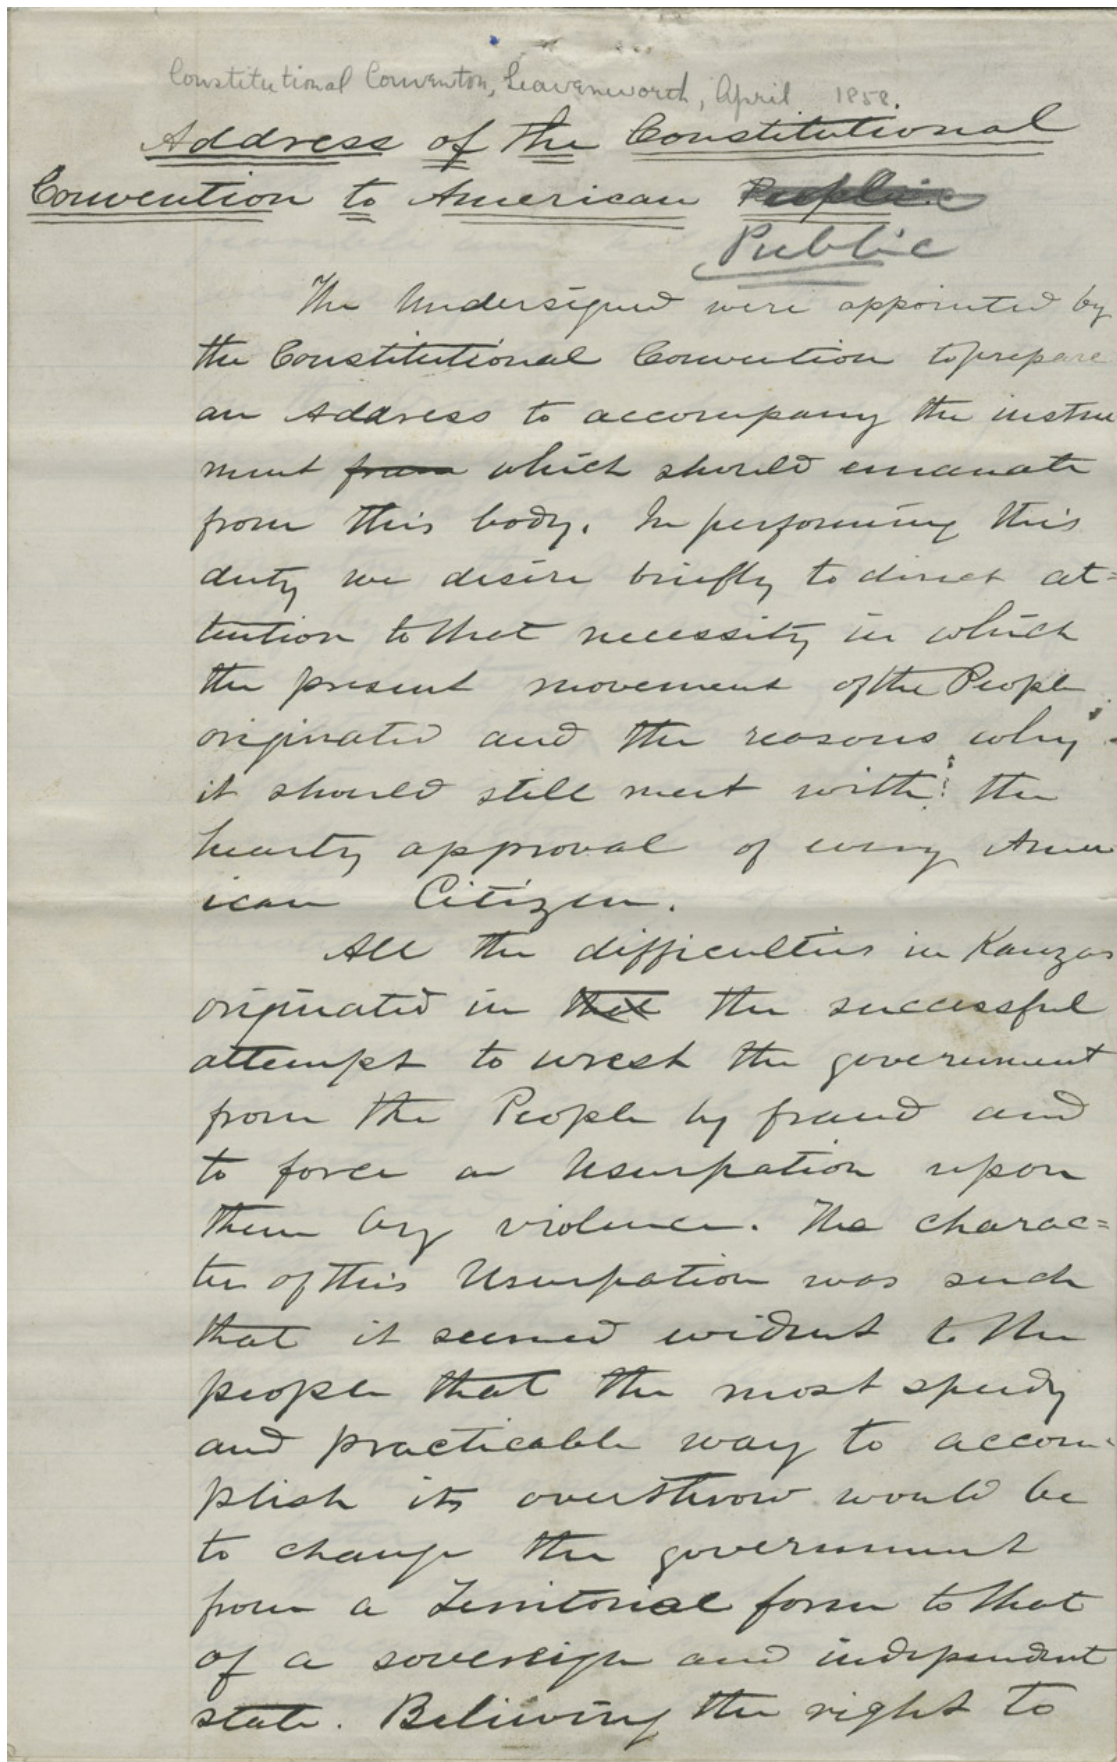 Constitutional Convention, Leavenworth, April 1858.
Address of the Constitutional
Convention to American
Public
The Undersigned were appointed by
the Constitutional Convention to prepare
an Address to accompany the instru
ment from which should emanate
from this body. In performing this
duty we desire briefly to direct at=
tention to that necessity in which
the present movement of the People
originated and the reasons why
it should still meet with the
hearty approval of every Amer
ican Citizen.
All the difficulties in Kanzas
originated in that the successful
attempt to wrest the government
from the People by fraud and
to force a Usurpation upon
them by violence. The charac=
ter of this Usurpation was such
that it seemed evident to the
people that the most speedy
and practicable way to accom-
plish its overthrow would be
to change the government
from a Territorial form to that
of a sovereign and independent
state. Believing the right to